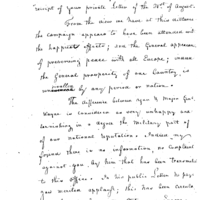 receipt of your private Letter of the 28th of August.
From the view we have at this distance
the campaign appears to have been attended with
the happiest effects; and the General appearance
of preserving peace with all Europe, insure
the General prosperity of our Country, is
by any period or nation.
The difference between you & Major Genl.
Wayne is considered as very unhappy as
tarnishing in a degree the Military part of
of our national reputation.
there is no information, no Complaint
against you by him that has been Transmitted
to this office. In his public letter he pays
you merited applause; this has been